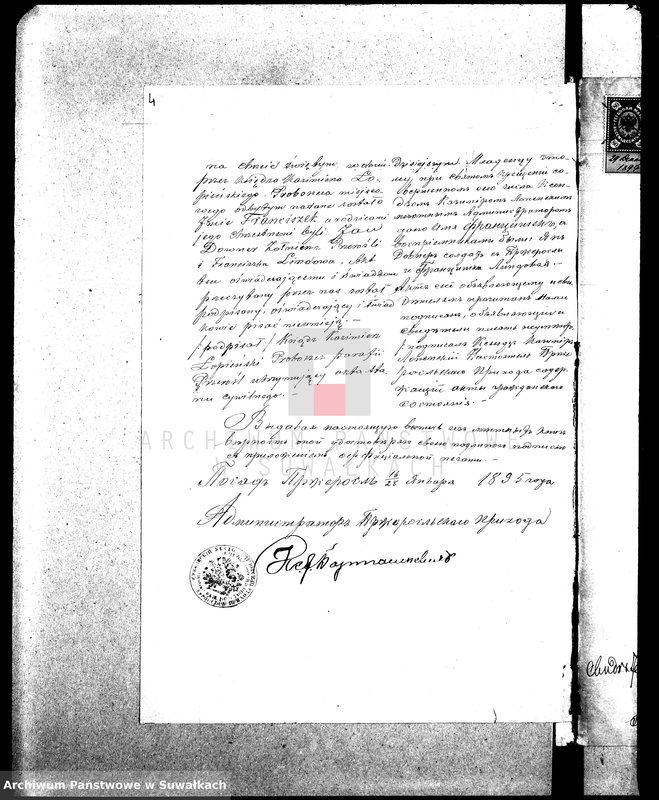 4
na Chrcie Świętym, w dniu
przez Księdza Kazimierza Ło-
picińskiego Proboszcza miejsco
wego odbytym nadane zostało
Imie Franciszek a rodzicami
jego Chrzestnemi byli: Jan
Downer Żołnierz z Przerośli
i Franciszka Lindowa. Akt
ten oświadczającemu i świadkom
przeczytany przez nas został
podpisany, oświadczający i świad
kowie pisać nieumieją. –
/podpisał/ Ksiądz Kazimierz
Łopiciński Proboszcz parafii
Przerośl utrzymujący akta sta
nu cywilnego. –
Dzisiejszym Младенцу это-
му, при святомъ крещеніи со-
вершенномъ сего числа Ксен-
дзомъ Казиміромъ Лопицинскимъ
мѣстнымъ Администраторомъ
дано имя Францишекъ, а
воспріемниками были: Янъ
Довнеръ солдатъ съ Пржеросли
и Францишка Линдовая. –
Актъ сей объявляющему и сви
дѣтелямъ прочитанъ Нами
подписанъ, объявляющій и
свидѣтели писать неумѣютъ,
/подписалъ/ Ксендзъ Казиміръ
Лопицинскій Настоятель Прже
росльскаго Прихода содер-
жащій акты гражданскаго
состоянія. –
Выдавая настоящую выпись изъ метрическихъ книгъ
вѣрность оной удостовѣряю своею подписью
съ приложеніемъ оффиціальной печати. –
Посадъ Пржеросль 16/28 Января 1895 года
Администраторъ Пржеросльскаго прихода
Archiwum Państwowe w Suwałkach